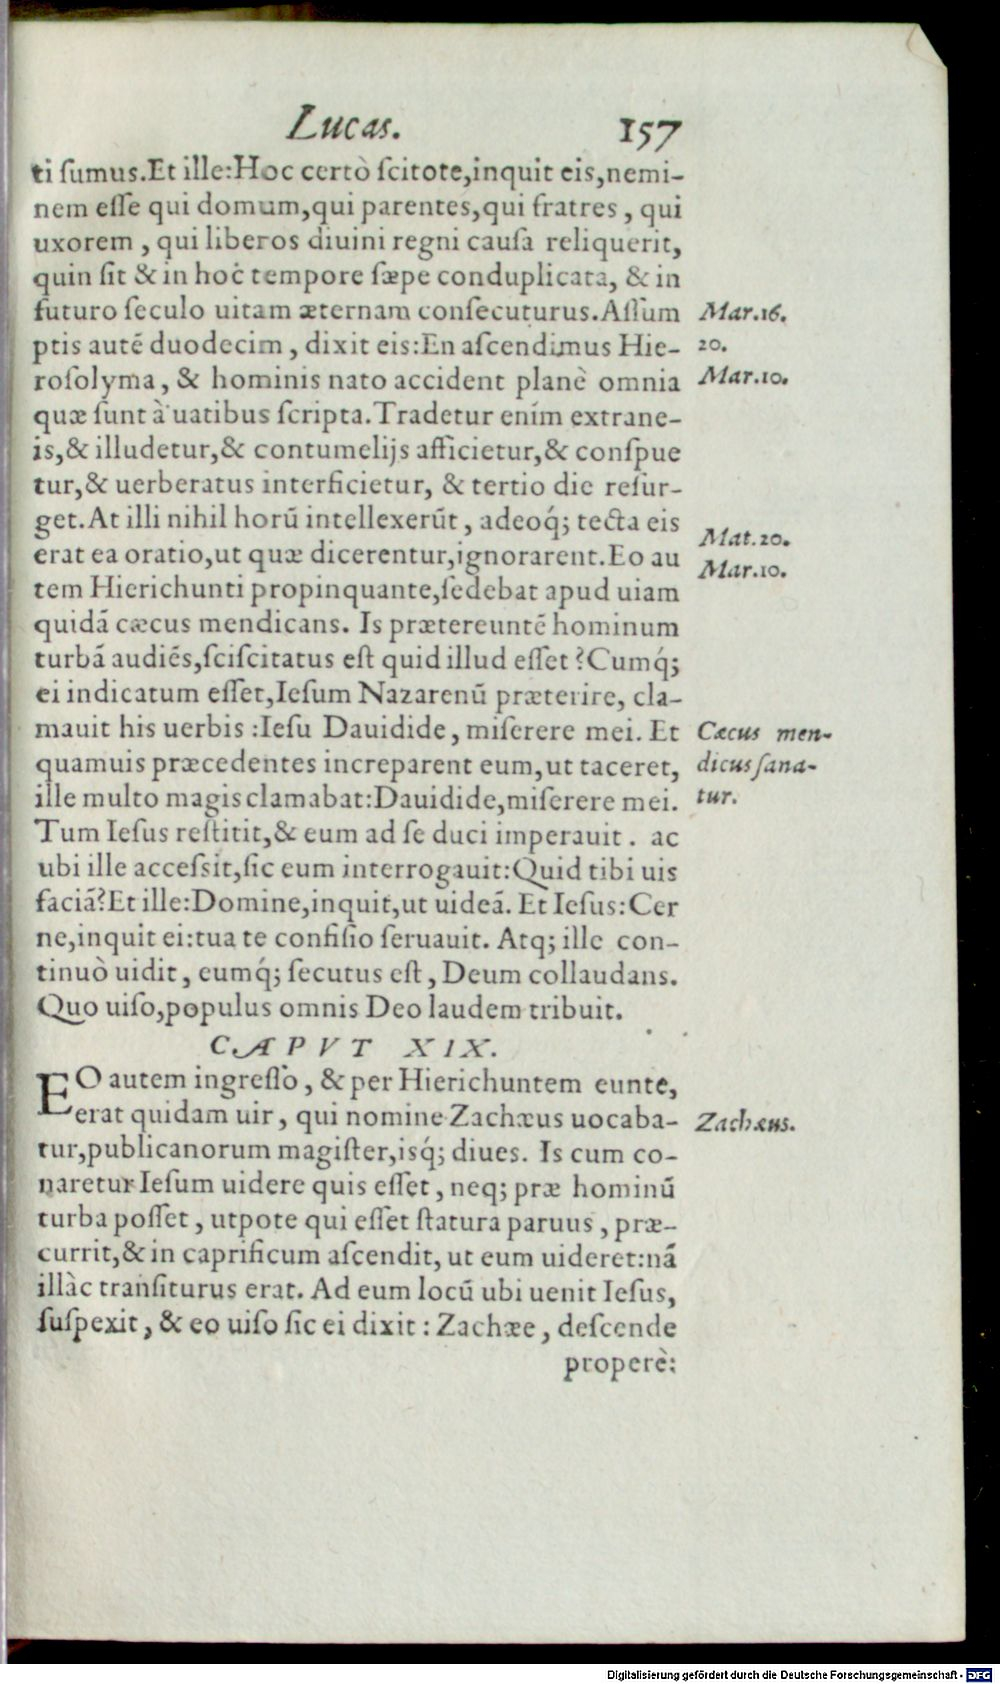 Lucas. 157
ti ſumus.Et ille:Hoc certò ſcitote,inquit eis,nemi-
nem eſſe qui domum,qui parentes,qui fratres, qui
uxorem, qui liberos diuini regni cauſa reliquerit,
quin ſit & in hoc tempore ſæpe conduplicata, & in
futuro ſeculo uitam æternam conſecuturus.Aſſum
ptis autẽ duodecim, dixit eis:En aſcendimus Hie-
roſolyma, & hominis nato accident planè omnia
quæ ſunt à uatibus ſcripta.Tradetur enim extrane-
is,& illudetur,& contumelijs afficietur,& conſpue
tur,& uerberatus interficietur, & tertio die reſur-
get.At illi nihil horũ intellexerũt, adeoq́; tecta eis
erat ea oratio,ut quæ dicerentur,ignorarent.Eo au
tem Hierichunti propinquante,ſedebat apud uiam
quidã cæcus mendicans. Is prætereuntẽ hominum
turbã audiẽs,ſciſcitatus eſt quid illud eſſet?Cumq́;
ei indicatum eſſet,Ieſum Nazarenũ præterire, cla-
mauit his uerbis:Ieſu Dauidide, miſerere mei. Et
quamuis præcedentes increparent eum,ut taceret,
ille multo magis clamabat:Dauidide,miſerere mei.
Tum Ieſus reſtitit,& eum ad ſe duci imperauit. ac
ubi ille acceſsit,ſic eum interrogauit:Quid tibi uis
faciã?Et ille:Domine,inquit,ut uideã. Et Ieſus:Cer
ne,inquit ei:tua te confiſio ſeruauit. Atq; ille con-
tinuò uidit, eumq́; ſecutus eſt, Deum collaudans.
Quo uiſo,populus omnis Deo laudem tribuit.
CAPVT XIX.
EO autem ingreſſo, & per Hierichuntem eunte,
erat quidam uir, qui nomine Zachæus uocaba-
tur,publicanorum magiſter,isq́; diues. Is cum co-
naretur Ieſum uidere quis eſſet, neq; præ hominũ
turba poſſet, utpote qui eſſet ſtatura paruus, præ-
currit,& in caprificum aſcendit, ut eum uideret:nã
illàc tranſiturus erat. Ad eum locũ ubi uenit Ieſus,
ſuſpexit, & eo uiſo ſic ei dixit: Zachæe, deſcende
properè:
Mar.16.
20.
Mar.10.
Mat.20.
Mar.10.
Cæcus men-
dicus ſana-
tur.
Zachæus.
Digitalisierung gefördert durch die Deutsche Forschungsgemeinschaft - DFG